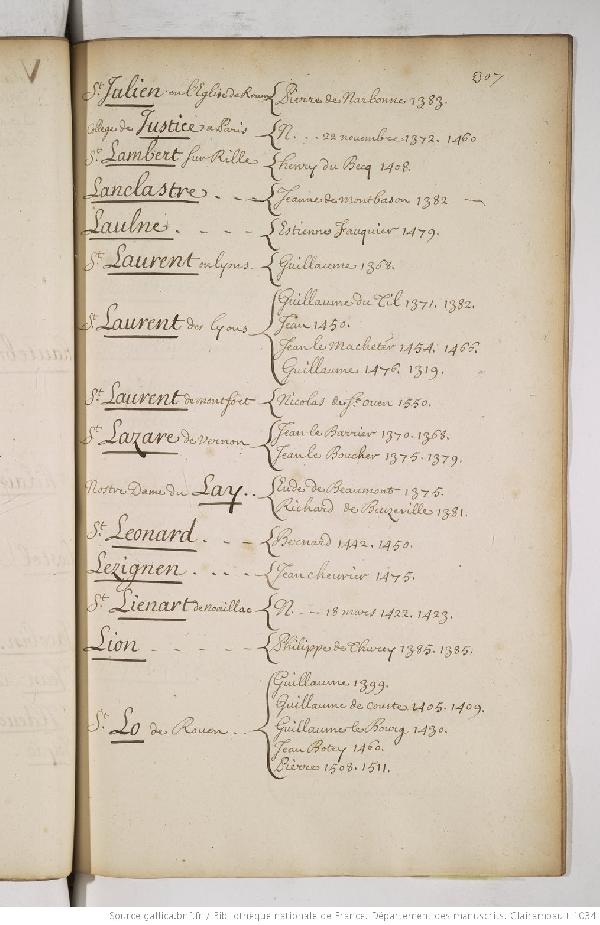 307
St. Julien en l'Eglise de Rouen { Pierre de Narbonne 1383.
College de Justice a Paris { N. . . 22 novembre 1372. 1460
St. Lambert sur Rille { henry du Becq 1408.
Lanclastre . - - { Jeanne de montbason 1382
Laulne . - - - { Estienne Fauquier 1479.
St. Laurent en lyons - { Guillaume 1368.
St. Laurent des lyons { Guillaume du Til 1371. 1382.
Jean 1450.
Jean le Macheter 1454. 1466.
Guillaume 1476. 1319.
St. Laurent de montfort { Nicolas de St. ouen 1550.
St. Lazare de vernon { Jean le Barrier 1370. 1368.
Jean le Boucher 1375. 1379.
Nostre Dame du Lay . . { Eudes de Beaumont 1375.
Richard de Beuzeville 1381.
St. Leonard . - - { Bernard 1442. 1450.
Lezignen . . . . { Jean cheurier 1475.
St. Lienart de noaillac { N. - - - 18 mars 1422. 1423.
Lion - - - - - { Philippe de Thurey 1385. 1385.
St. Lo de Rouen - - { Guillaume 1399.
Guillaume de couste 1405. 1409.
Guillaume le Bourg 1430.
Jean Botey 1460.
Pierre 1508. 1511.
Source gallica.bnf.fr / Bibliothèque nationale de France. Département des manuscrits. Clairambault 1034